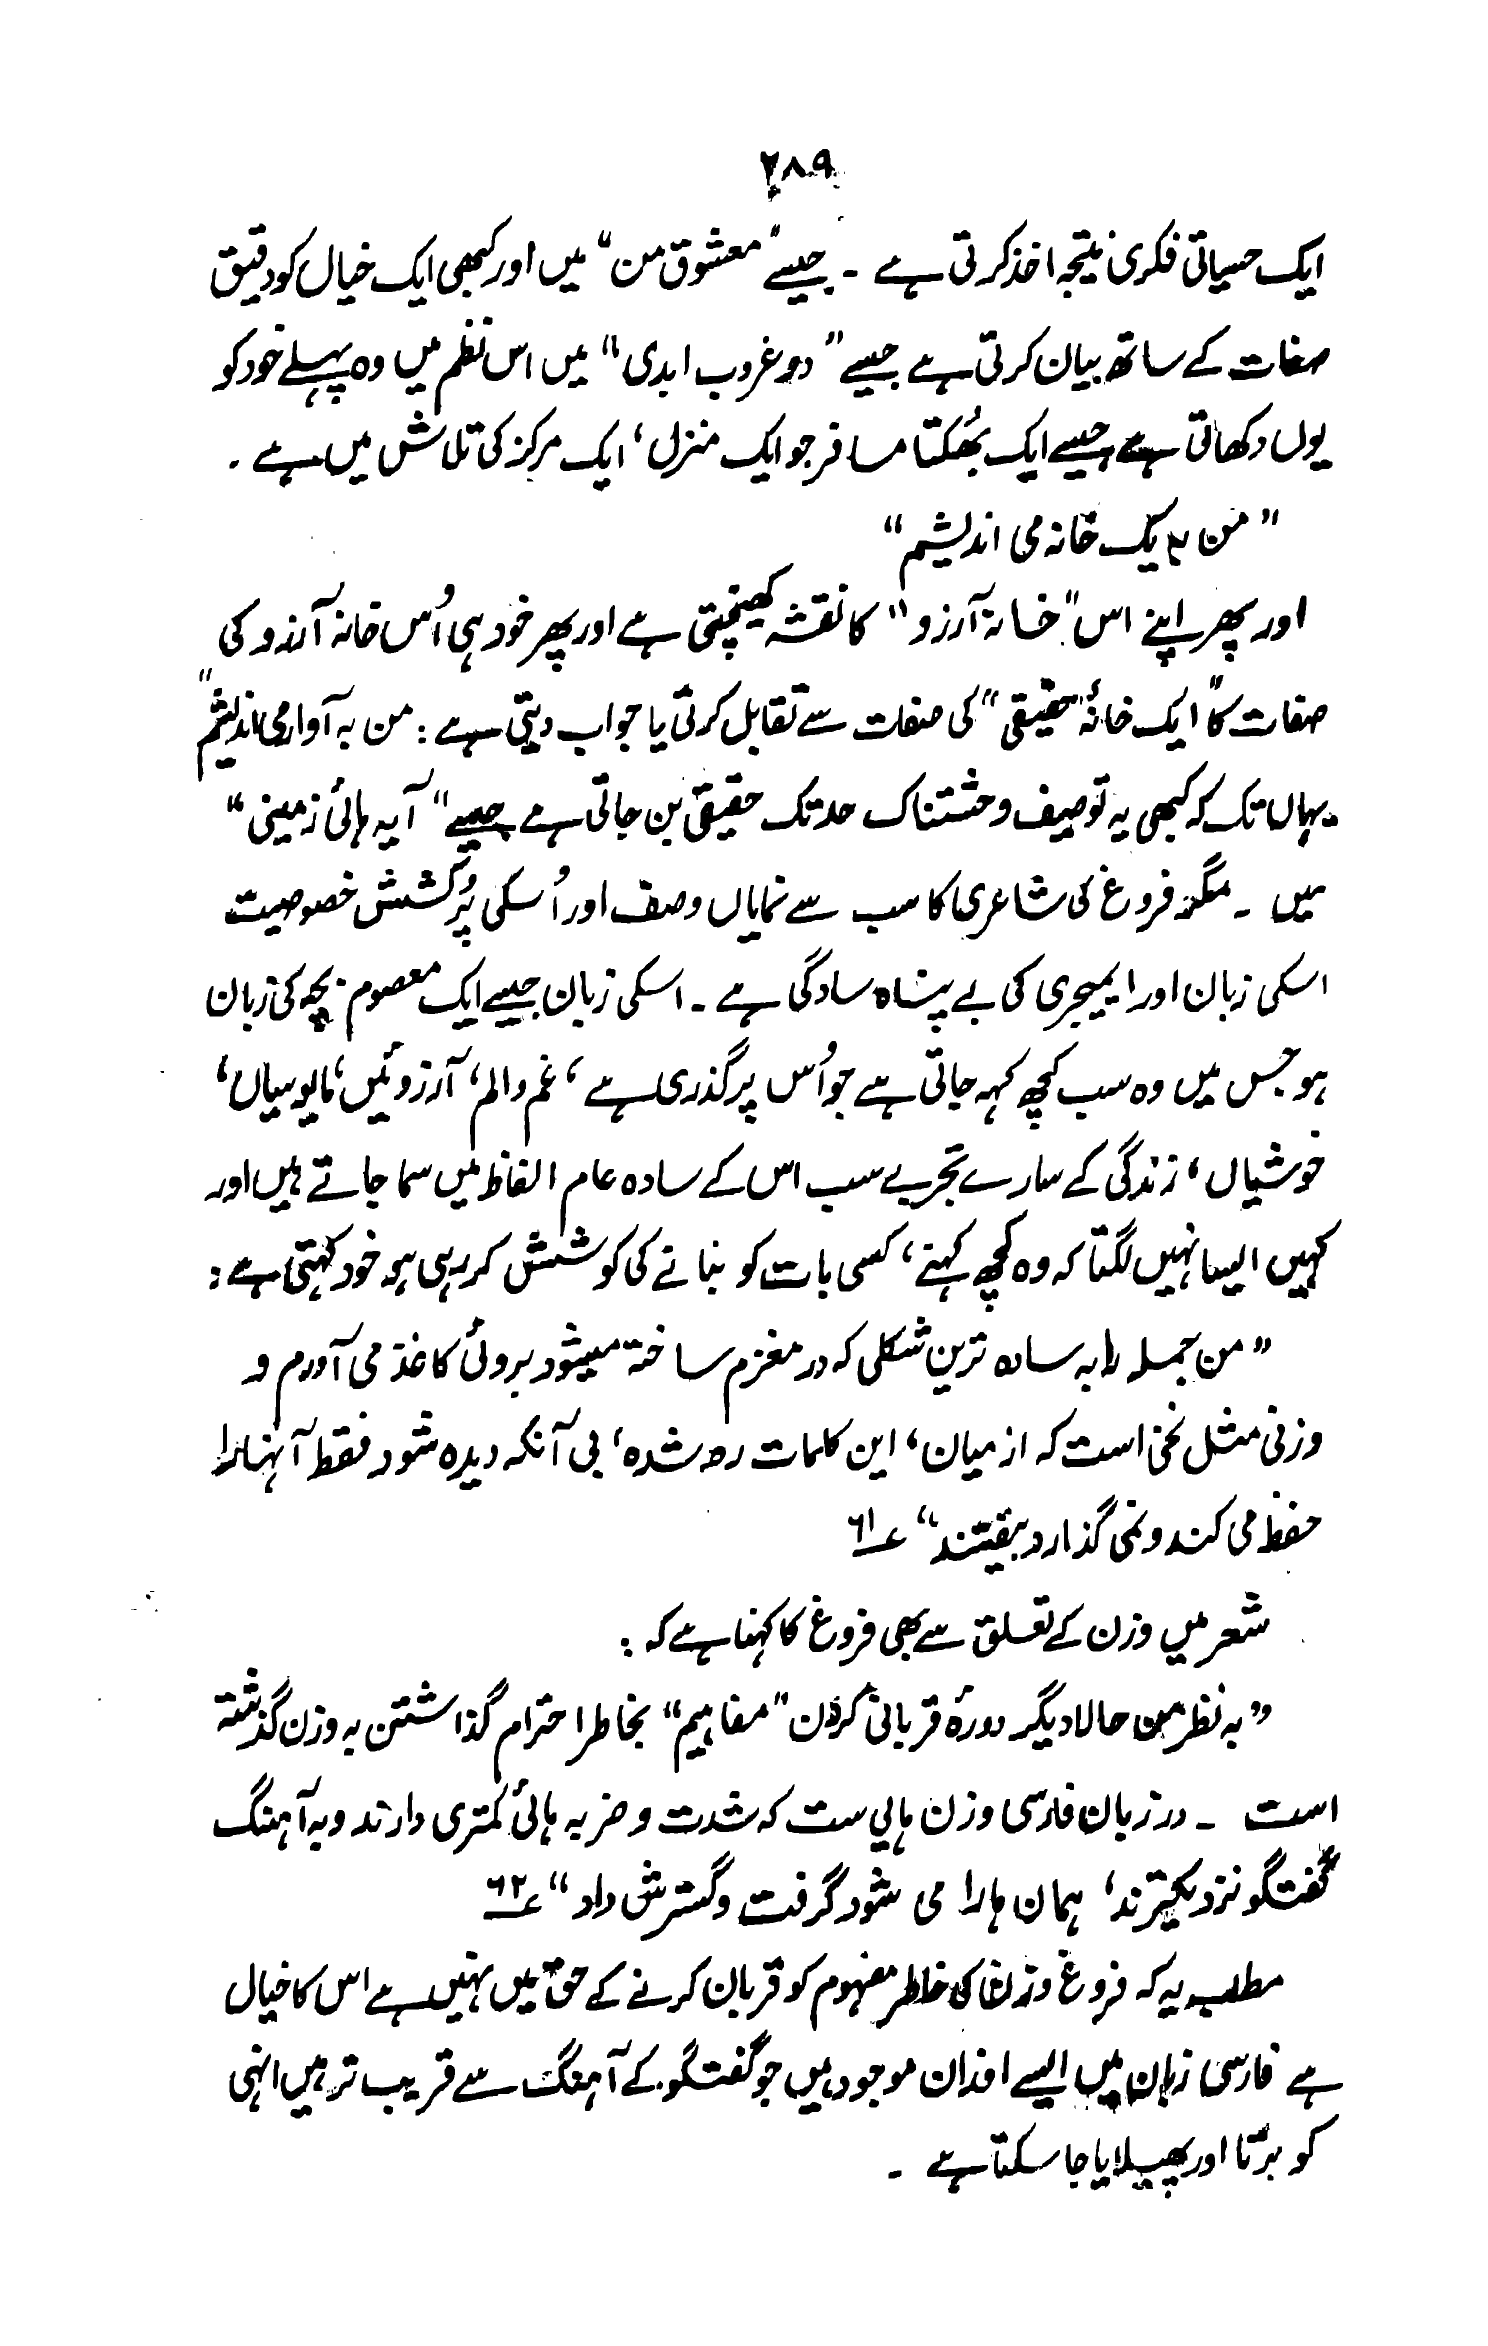 ۲۸۹
ایک حسیاتی فکری نیتجہ اخذ کرتی ہے ۔ جیسے "معشوق من" میں اور کبھی ایک خیال کو دقیق
صفات کے ساتھ بیان کرتی ہے جیسے "در غروب ابدی" میں اس نظم میں وہ پہلے خود کو
یوں دکھاتی ہے جیسے ایک بھٹکتا مسافر جو ایک منزل، ایک مرکز کی تلاش میں ہے ۔
"من بہ یک خانہ می اندیشم"
اور پھر اپنے اس "خانۂ آرزو" کا نقشہ کھینچتی ہے اور پھر خود ہی اُس خانہ آرزو کی
صفات کا "ایک خانۂ حقیقی" کی صفات سے تقابل کرتی یا جواب دیتی ہے : من بہ آوار می اندیشم"
یہاں تک کہ کبھی یہ توصیف وحشتناک حد تک حقیقی بن جاتی ہے جیسے "آیہ ہائی زمینی"
میں ۔ مگر فروغ کی شاعری کا سب سے نمایاں وصف اور اُسکی پُرکشش خصوصیت
اسکی زبان اور ایمیجری کی بے پناہ سادگی ہے ۔ اسکی زبان جیسے ایک معصوم بچہ کی زبان
ہو جس میں وہ سب کچھ کہہ جاتی ہے جو اُس پر گذری ہے، غم و الم، آرزوئیں، مایوسیاں،
خوشیاں، زندگی کے سارے تجربے سب اس کے سادہ عام الفاظ میں سما جاتے ہیں اور
کہیں ایسا نہیں لگتا کہ وہ کچھ کہنے، کسی بات کو بنانے کی کوشش کر رہی ہو خود کہتی ہے :
"من جملہ را بہ سادہ ترین شکلی کہ در مغزم ساختہ میشود بروئی کاغذ می آورم و
وزنی مثل نخی است کہ از میان، این کلمات رد شدہ، بی آنکہ دیدہ شود فقط آنہارا
حفظ می کند و نمی گذارد بیفتند" ؏۶۱
شعر میں وزن کے تعلق سے بھی فروغ کا کہنا ہے کہ :
"بہ نظر من حالا دیگر دورۂ قربانی کردن "مفاہیم" بخاطر احترام گذاشتن بہ وزن گذشتہ
است ۔ در زبان فارسی وزن ہایی ست کہ شدت و ضربہ ہائی کمتری دارند و بہ آہنگ
گفتگو نزدیکترند، ہمان ہارا می شود گرفت و گسترش داد" ؏۶۲
مطلب یہ کہ فروغ وزن کی خاطر مفہوم کو قربان کرنے کے حق میں نہیں ہے اس کا خیال
ہے فارسی زبان میں ایسے اوزان موجود ہیں جو گفتگو کے آہنگ سے قریب تر ہیں انہی
کو برتا اور پھیلایا جا سکتا ہے ۔